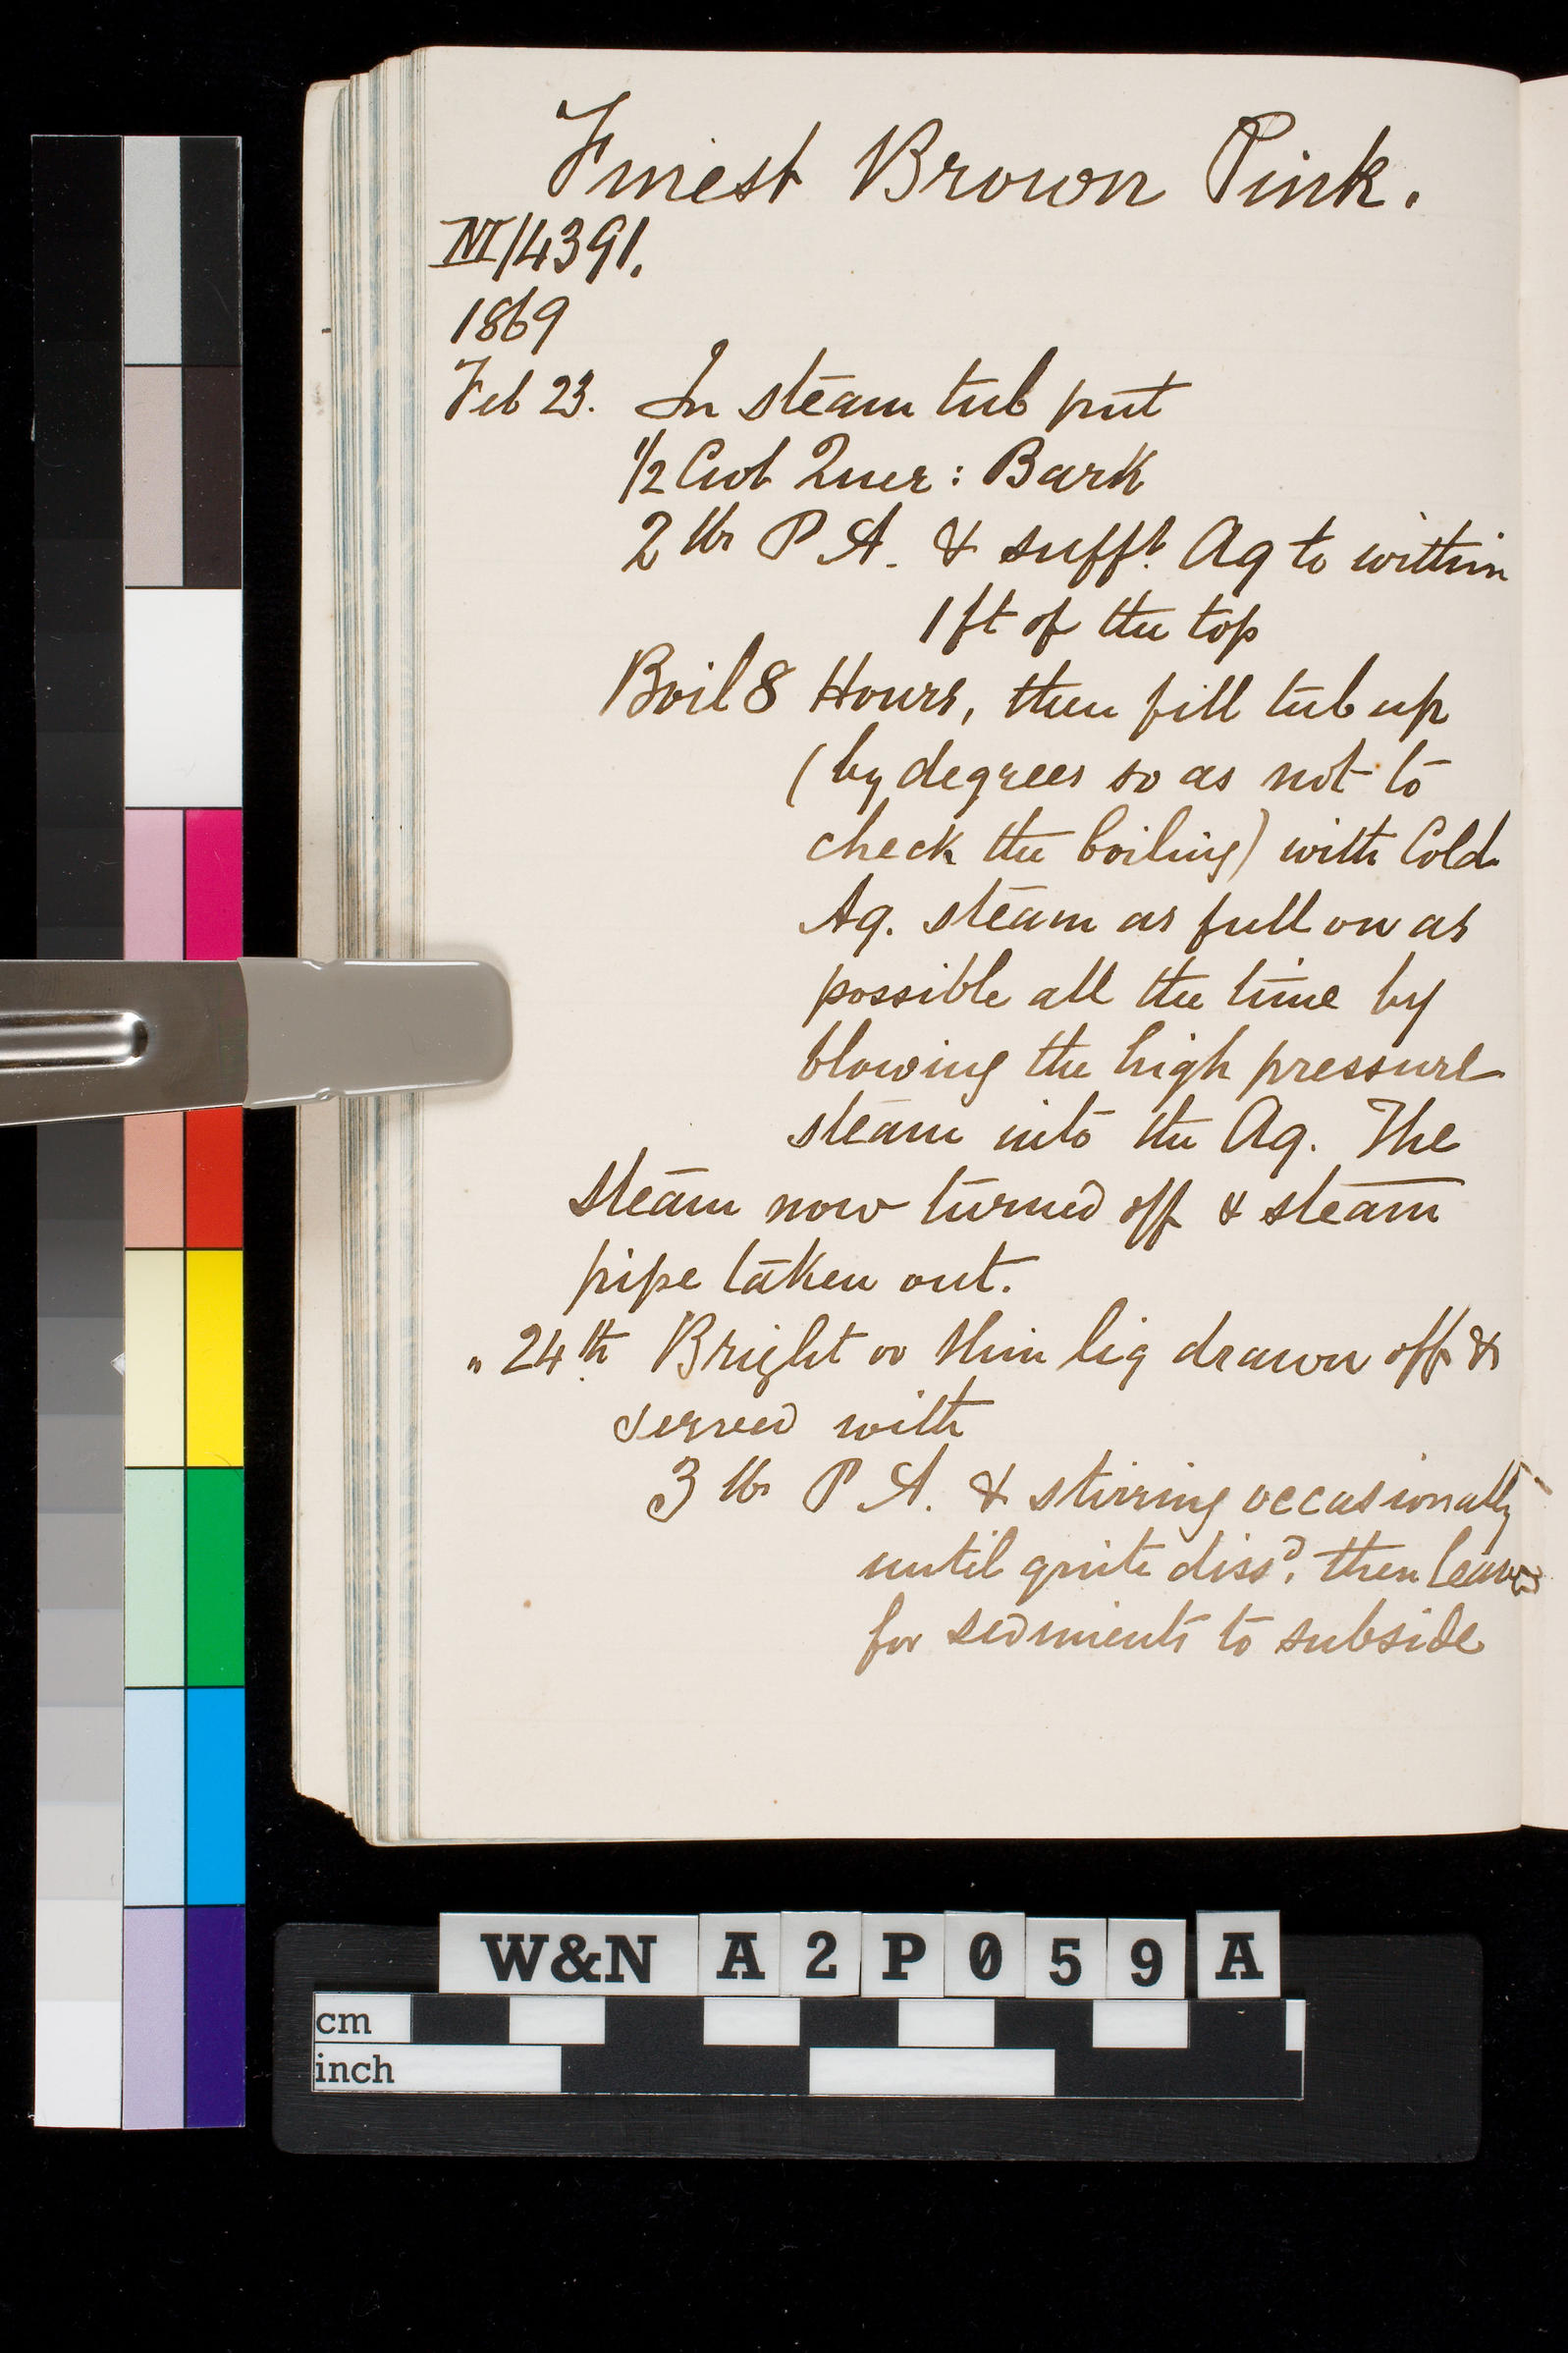 Finest Brown Pink.
1869
Feb 23. In steam tub put
1/2 Cwt Quer: Bark
2 lbs P A. & sufft. Aq to within
1 ft of the top
Boil 8 Hours, then fill tub up
(by degrees so as not to
check the boiling) with Cold
Aq. steam as full on as
possible all the time by
blowing the high pressure
steam into the Aq. The
steam now turned off & steam
pipe taken out.
" 24th Bright oo thin liq drawn off &
served with
3 lbs P A. & stirring occasionally
until quite dissd. then leave
for sediments to subside
W&N A2P059 A
cm
inch